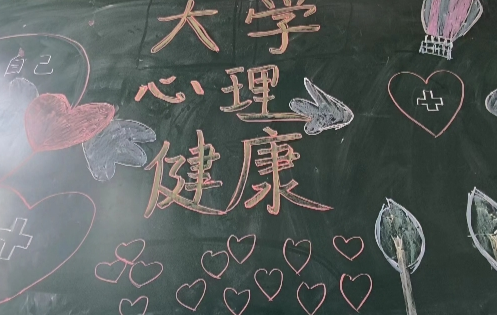 大学
心理
健康
自己